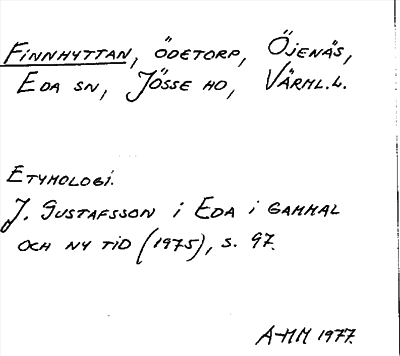 FINNHYTTAN, ÖDETORP, ÖJENÄS,
EDA SN, JÖSSE HD, VÄRML.L.
ETYMOLOGI.
J. GUSTAFSSON I EDA I GAMMAL
OCH NY TID (1975), S. 97.
A-MM 1977.